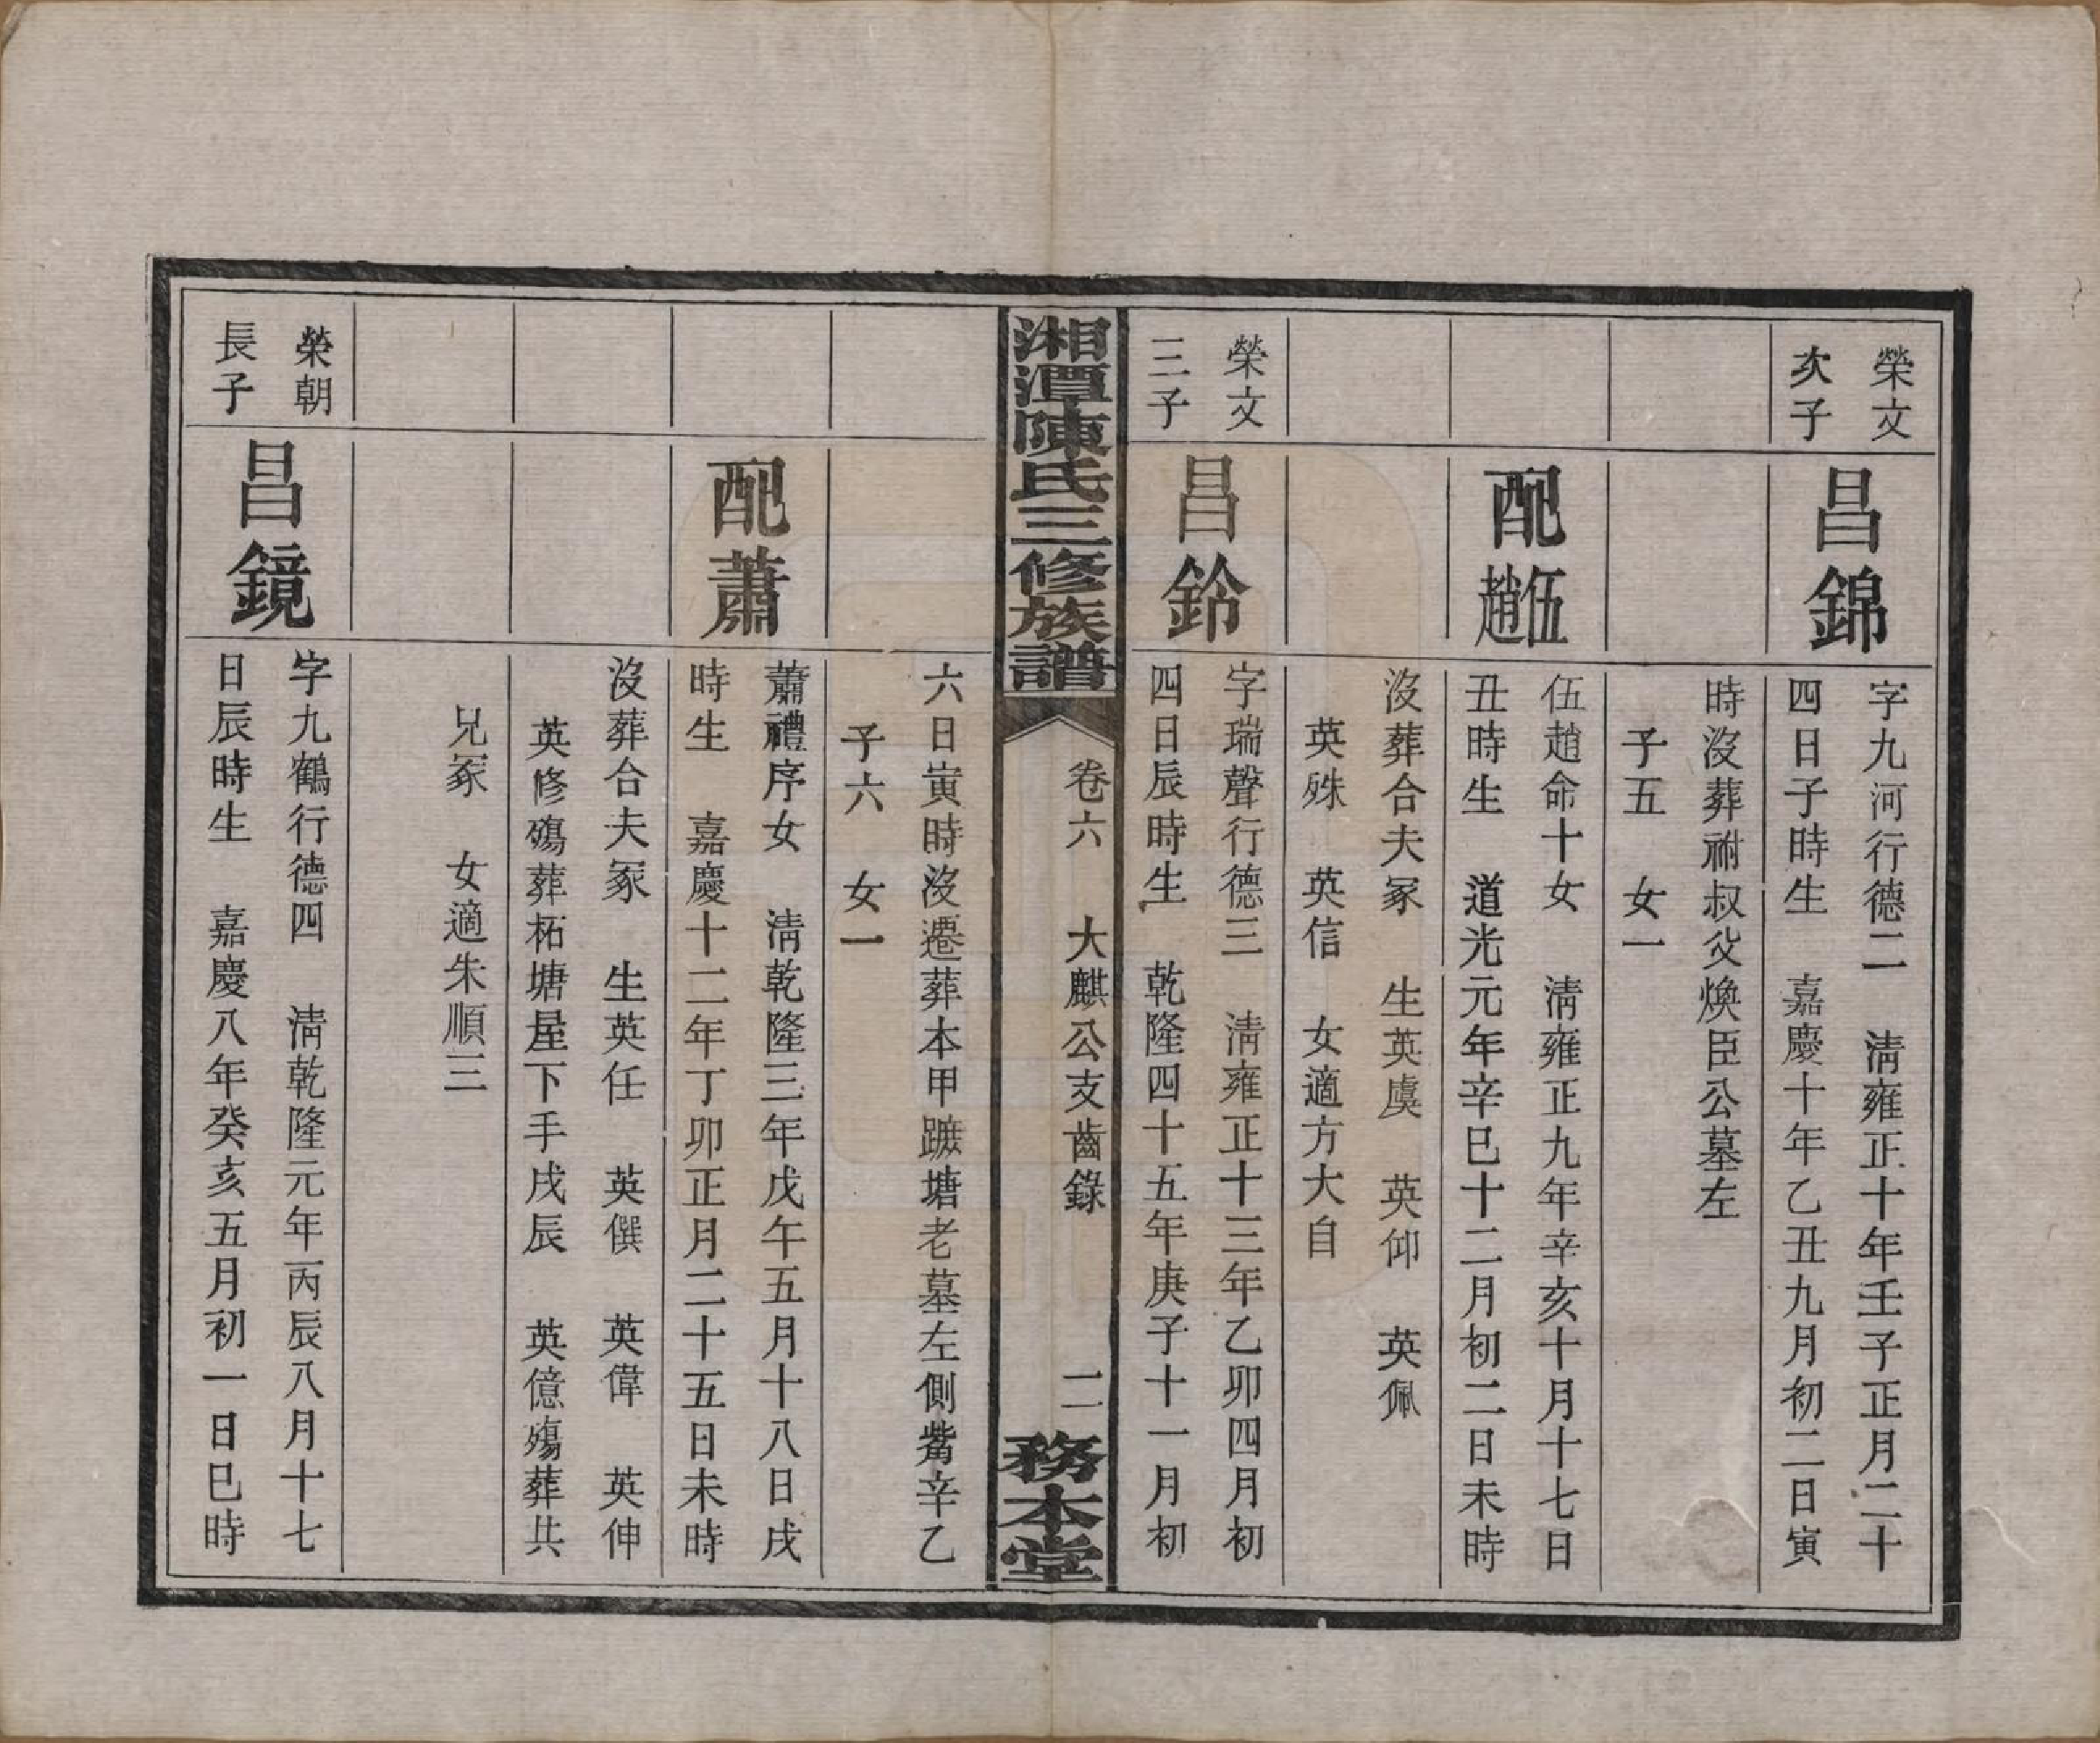 榮文
次子
昌錦
字九河行德二　淸雍正十年壬子正月二十
四日子時生　嘉慶十年乙丑九月初二日寅
時沒葬祔叔父煥臣公墓左
子五　女一
配伍趙
伍趙命十女　淸雍正九年辛亥十月十七日
丑時生　道光元年辛巳十二月初二日未時
沒葬合夫冢　生英虞　英仰　英佩
英殊　英信　女適方大自
榮文
三子
昌鈴
字瑞聲行德三　淸雍正十三年乙卯四月初
四日辰時生　乾隆四十五年庚子十一月初
湘潭陳氏三修族譜
卷六　大麒公支齒錄　二
務本堂
六日寅時沒遷葬本甲蹠塘老墓左側觜辛乙
子六　女一
配蕭
蕭禮序女　淸乾隆三年戊午五月十八日戌
時生　嘉慶十二年丁卯正月二十五日未時
沒葬合夫冢　生英任　英僎　英偉　英伸
英修殤葬柘塘屋下手戌辰　英億殤葬共
兄冢　女適朱順三
榮朝
長子
昌鏡
字九鶴行德四　淸乾隆元年丙辰八月十七
日辰時生　嘉慶八年癸亥五月初一日巳時